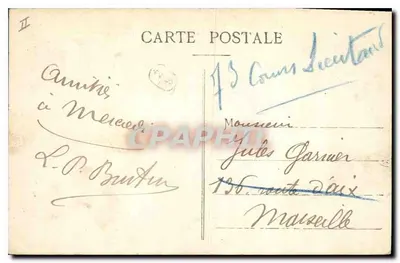 II
CARTE POSTALE
73 Cours Lieutaud
Amitiés
à Mercredi
L. P.
Monsieur
Jules Garnier
136 route d'aix
Marseille